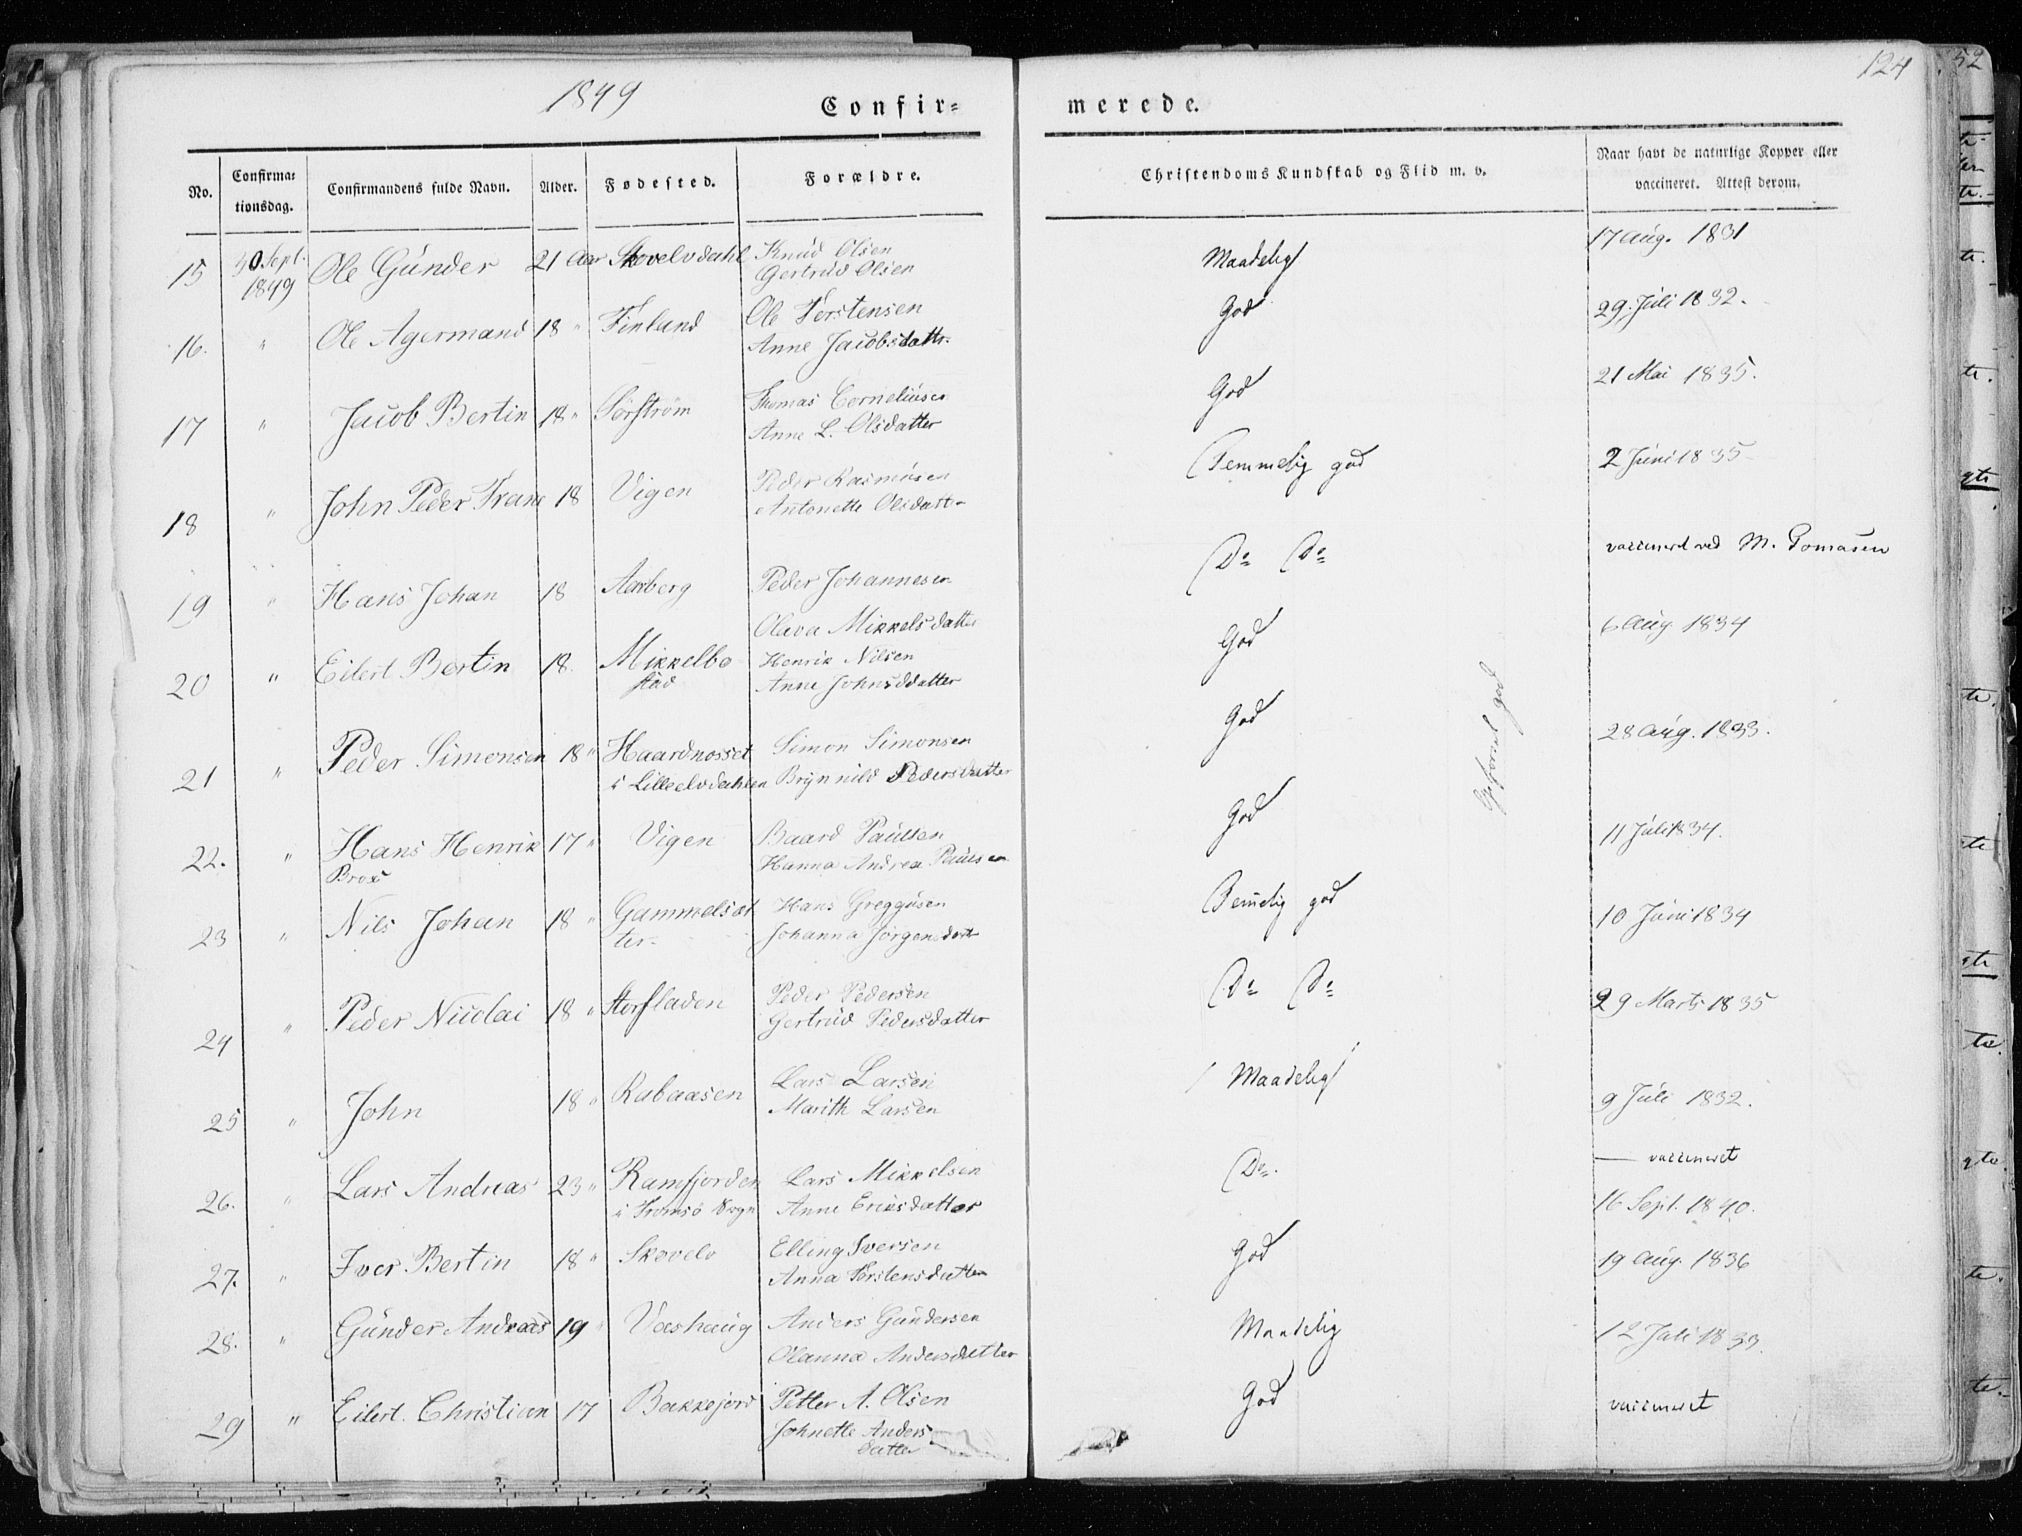 1849
Confir=
merede.
124
52
No.
Confirma=
tionsdag.
Confirmandens fulde Navn.
Alder.
Fødested.
Forældre.
Christendoms Kundskab og Flid m. v.
Naar havt de naturlige Kopper eller
vaccineret. Attest derom.
15 30 Sept. 1849 Ole Günder 21 Aar Skovelvdahl Knud Olsen
Gertrud Olsen
Maadelig
17 Aug. 1831
16. " Ole Agermand 18 " Finland Ole Torstensen
Anne Jacobsdattr.
God
29. Juli 1832.
17 " Jacob Bertin 18 " Sørstrøm Thomas Corneliusen
Anne L. Olsdatter
God
21 Mai 1835.
18 " John Peder Frane 18 Vigen Peder Rasmusen
Antonette Olsdatt-
Temmelig god
2 Juni 1835
19 " Hans Johan 18 Aarberg Peder Johannesen
Olava Mikkelsdatter
Do Do
vaccineret ved M. Tomasen
20 " Eilert Bertin 18. Mikkelbo
stad
Henrik Nilsen
Anne Johnsdatter
God
6 Aug 1834
21 " Peder Simonsen 18 " Haardnosset
i Lilleelvdahlen
Simon Simonsen
Brynnild Pedersdatter
God
28 Aug. 1833.
22. " Hans Henrik 17 " Vigen Baard Paulsen
Brox
Hanna Andrea Paulsen
God
11 Juli 1834.
23 " Nils Johan 18 " Gammelsæt
ter-
Hans Greggusen
Johanna Jørgensdatt
Temelig god
10 Juni 1834
24 " Peder Nicolai 18 " Storsladen Peder Pedersen
Gertrud Pedersdatter
Do Do
29 Marts 1835
25 " John 18 " Rabaasen Lars Larsen
Marith Larsen
Maadelig
9 Juli 1832.
26. " Lars Andreas 23 " Ramfjorden
i Tromsø Sogn
Lars Mikkelsen
Anne Eriksdatter
Do.
— vaccineret
16 Sept. 1840.
27. " Iver Bertin 18 " Skovelv Elling Iversen
Anna Torstensdatter
God
19 Aug. 1836
28. " Günder Andreas 19 " Vashaug Anders Gundersen
Olanna Andersdatter
Maadelig
12 Juli 1833.
29 " Eilert Christian 17 Bakkejord Petter A. Olsen
Johnette Anders
datter
God
vaccineret